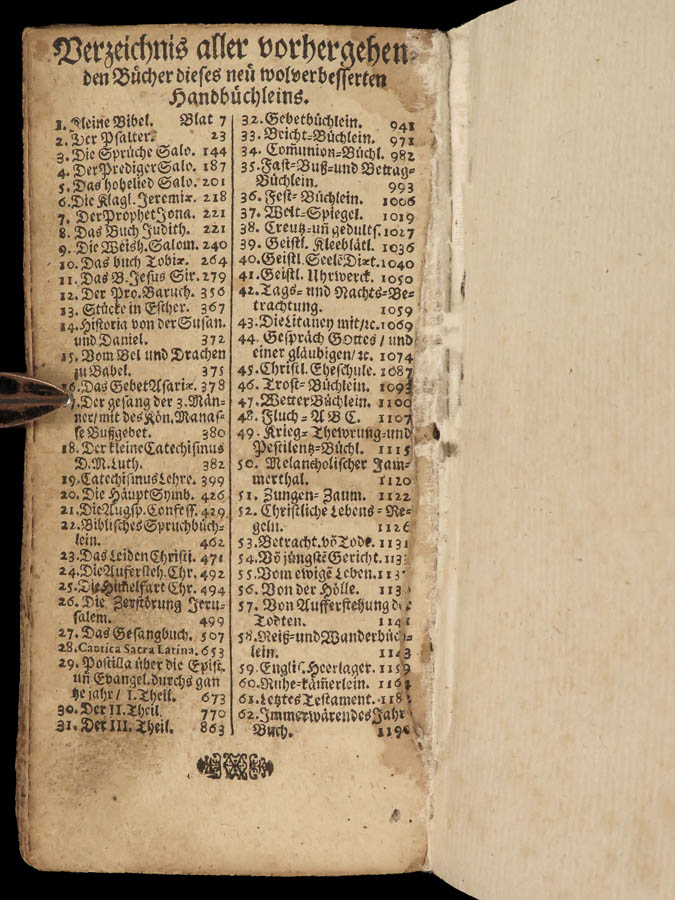 Verzeichnis aller vorhergehen-
den Bücher dieses neu wolverbesserten
Handbüchleins.
1. Kleine Bibel. Blat 7
2. Der Psalter. 23
3. Die Sprüche Salo. 144
4. Der Prediger Salo. 187
5. Das hohelied Salo. 201
6. Die Klagl. Jeremiæ. 218
7. Der Prophet Jona. 221
8. Das Buch Judith. 221
9. Die Weish. Salom. 240
10. Das buch Tobiæ. 264
11. Das B. Jesus Sir. 279
12. Der Pro. Baruch. 356
13. Stücke in Esther. 367
14. Historia von der Susan.
und Daniel. 372
15. Vom Bel und Drachen
zu Babel. 375
16. Das Gebet Asariæ. 378
17. Der gesang der 3. Män-
ner/ mit des Kön. Manas-
se Bußgebet. 380
18. Der kleine Catechismus
D. M. Luth. 382
19. Catechismus Lehre. 399
20. Die Häupt Symb. 426
21. Die Augsp. Confess. 429
22. Biblisches Spruchbüch-
lein. 462
23. Das Leiden Christi. 471
24. Die Aufersteh. Chr. 492
25. Die Him̃elfart Chr. 494
26. Die Zerstörung Jeru-
salem. 499
27. Das Gesangbuch. 507
28. Cantica Sacra Latina. 653
29. Postilla über die Epist.
uñ Evangel. durchs gan
tze jahr/ I. Theil. 673
30. Der II. Theil 770
31. Der III. Theil. 863
32. Gebetbüchlein. 941
33. Beicht-Büchlein. 971
34. Com̃union-Büchl. 982
35. Fast-Buß-und Bettag-
Büchlein. 993
36. Fest-Büchlein. 1006
37. Welt-Spiegel. 1019
38. Creutz-uñ gedults. 1027
39. Geistl. Kleeblätl. 1036
40. Geistl. Seelē Diæt. 1040
41. Geistl. Uhrwerck. 1050
42. Tags-und Nachts-Be-
trachtung. 1059
43. Die Litaney mit/ꝛc. 1069
44. Gespräch Gottes/ und
einer gläubigen/ꝛc. 1074
45. Christl. Eheschule. 1087
46. Trost-Büchlein. 1093
47. Wetter Büchlein. 1100
48. Fluch-A B C. 1107
49. Krieg-Thewrung-und
Pestilentz-Büchl. 1115
50. Melancholischer Jam-
merthal. 1120
51. Zungen-Zaum. 1122
52. Christliche Lebens-Re-
geln. 1126
53. Betracht. vō Tode. 1131
54. Vō jüngstē Gericht. 113
55. Vom ewigē Leben. 113
56. Von der Hölle. 113
57. Von Aufferstehung der
Todten. 1141
58. Reiß-und Wanderbüch-
lein. 1143
59. Englis. Heerlager. 1159
60. Ruhe-kam̃erlein. 116
61. Letztes Testament. 118
62. Immerwärendes Jahr
Buch. 119